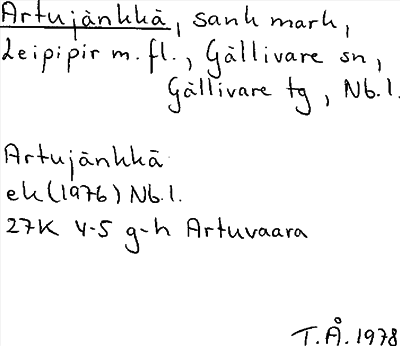 Artujänkkä, sank mark,
Leipipir m.fl., Gällivare sn,
Gällivare tg, Nb.l.
Artujänkkä
ek (1976) Nb.l.
27K 4-5 g-h Artuvaara
T.Å. 1978